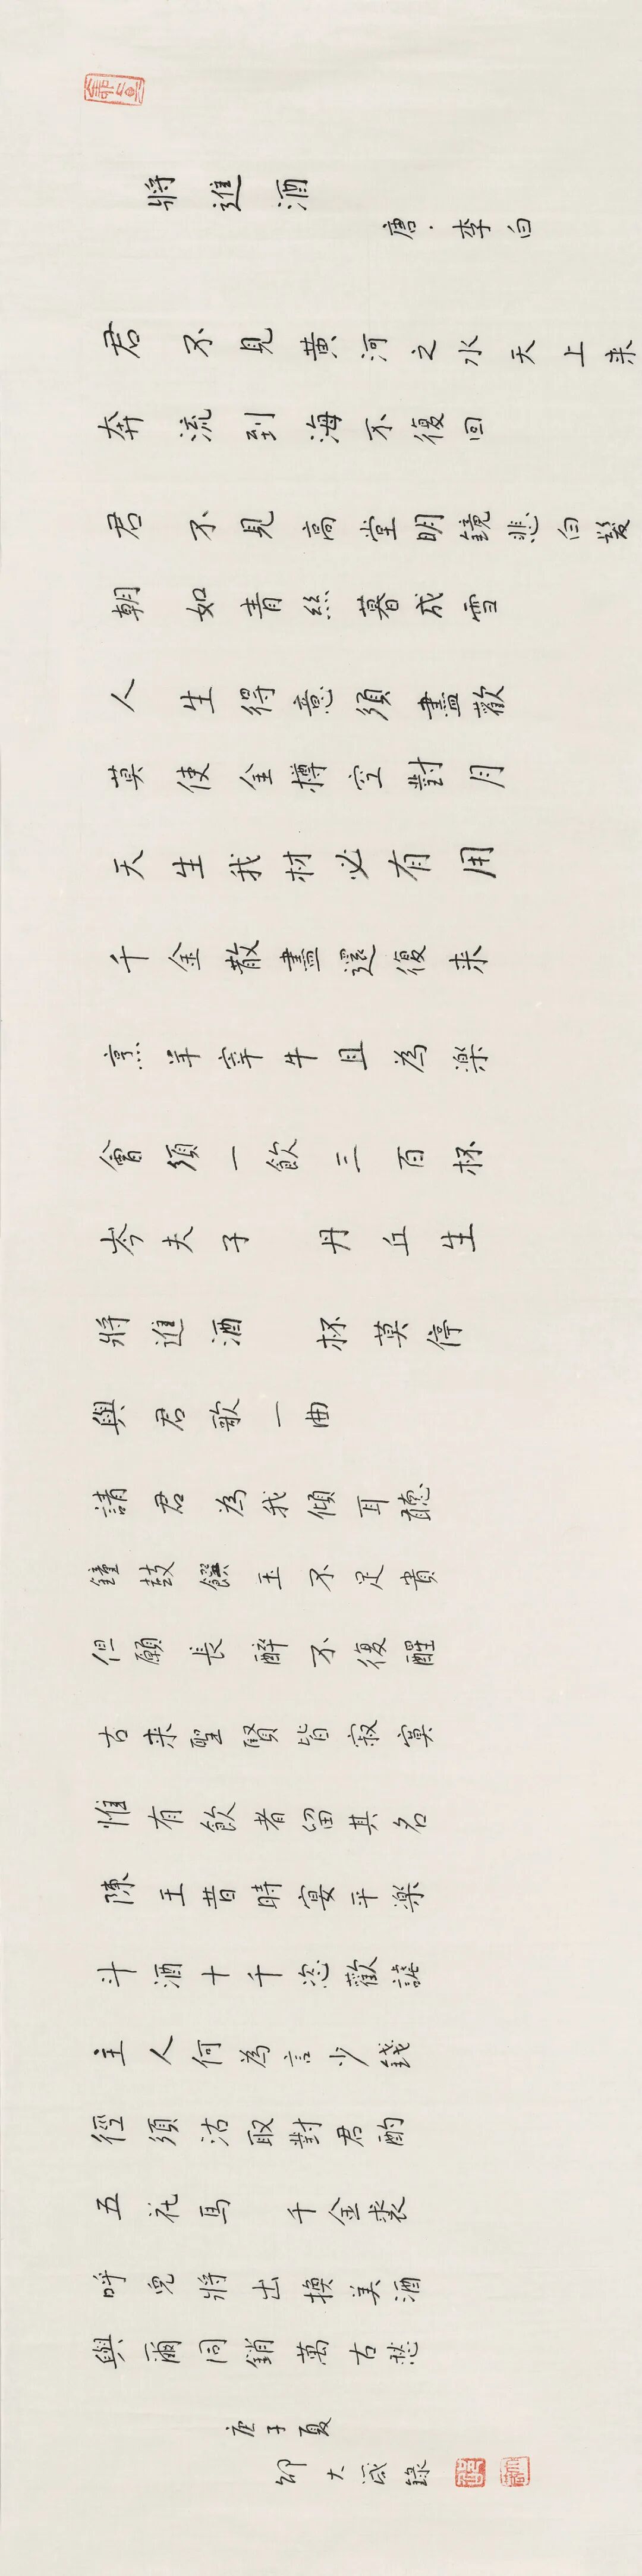 將進酒
唐·李白
君不見黃河之水天上来
奔流到海不復回
君不見高堂明鏡悲白髮
朝如青絲暮成雪
人生得意須盡歡
莫使金樽空對月
天生我材必有用
千金散盡還復来
烹羊宰牛且為樂
會須一飲三百杯
岑夫子 丹丘生
將進酒 杯莫停
與君歌一曲
請君為我傾耳聽
鐘鼓饌玉不足貴
但願長醉不復醒
古来聖賢皆寂寞
惟有飲者留其名
陳王昔時宴平樂
斗酒十千恣歡謔
主人何為言少錢
徑須沽取對君酌
五花馬 千金裘
呼兒將出換美酒
與爾同銷萬古愁
庚子夏
大箴錄